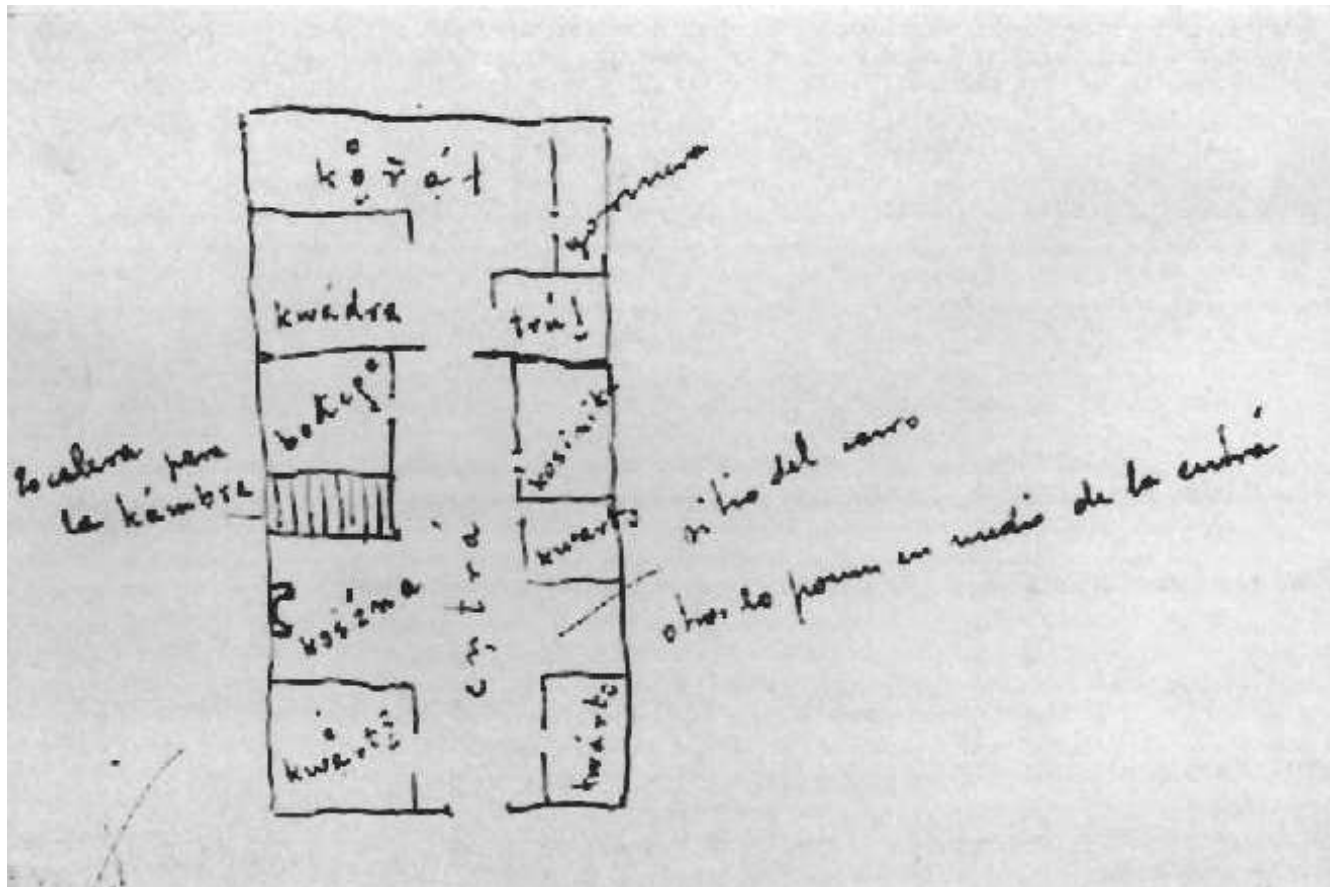 kọr̄ál
kwádra
trúl
Escalera para
la kámbra
kwarto
sitio del carro
otros lo ponen en medio de la entrá
kosína
entrá
kwárto
kwárto